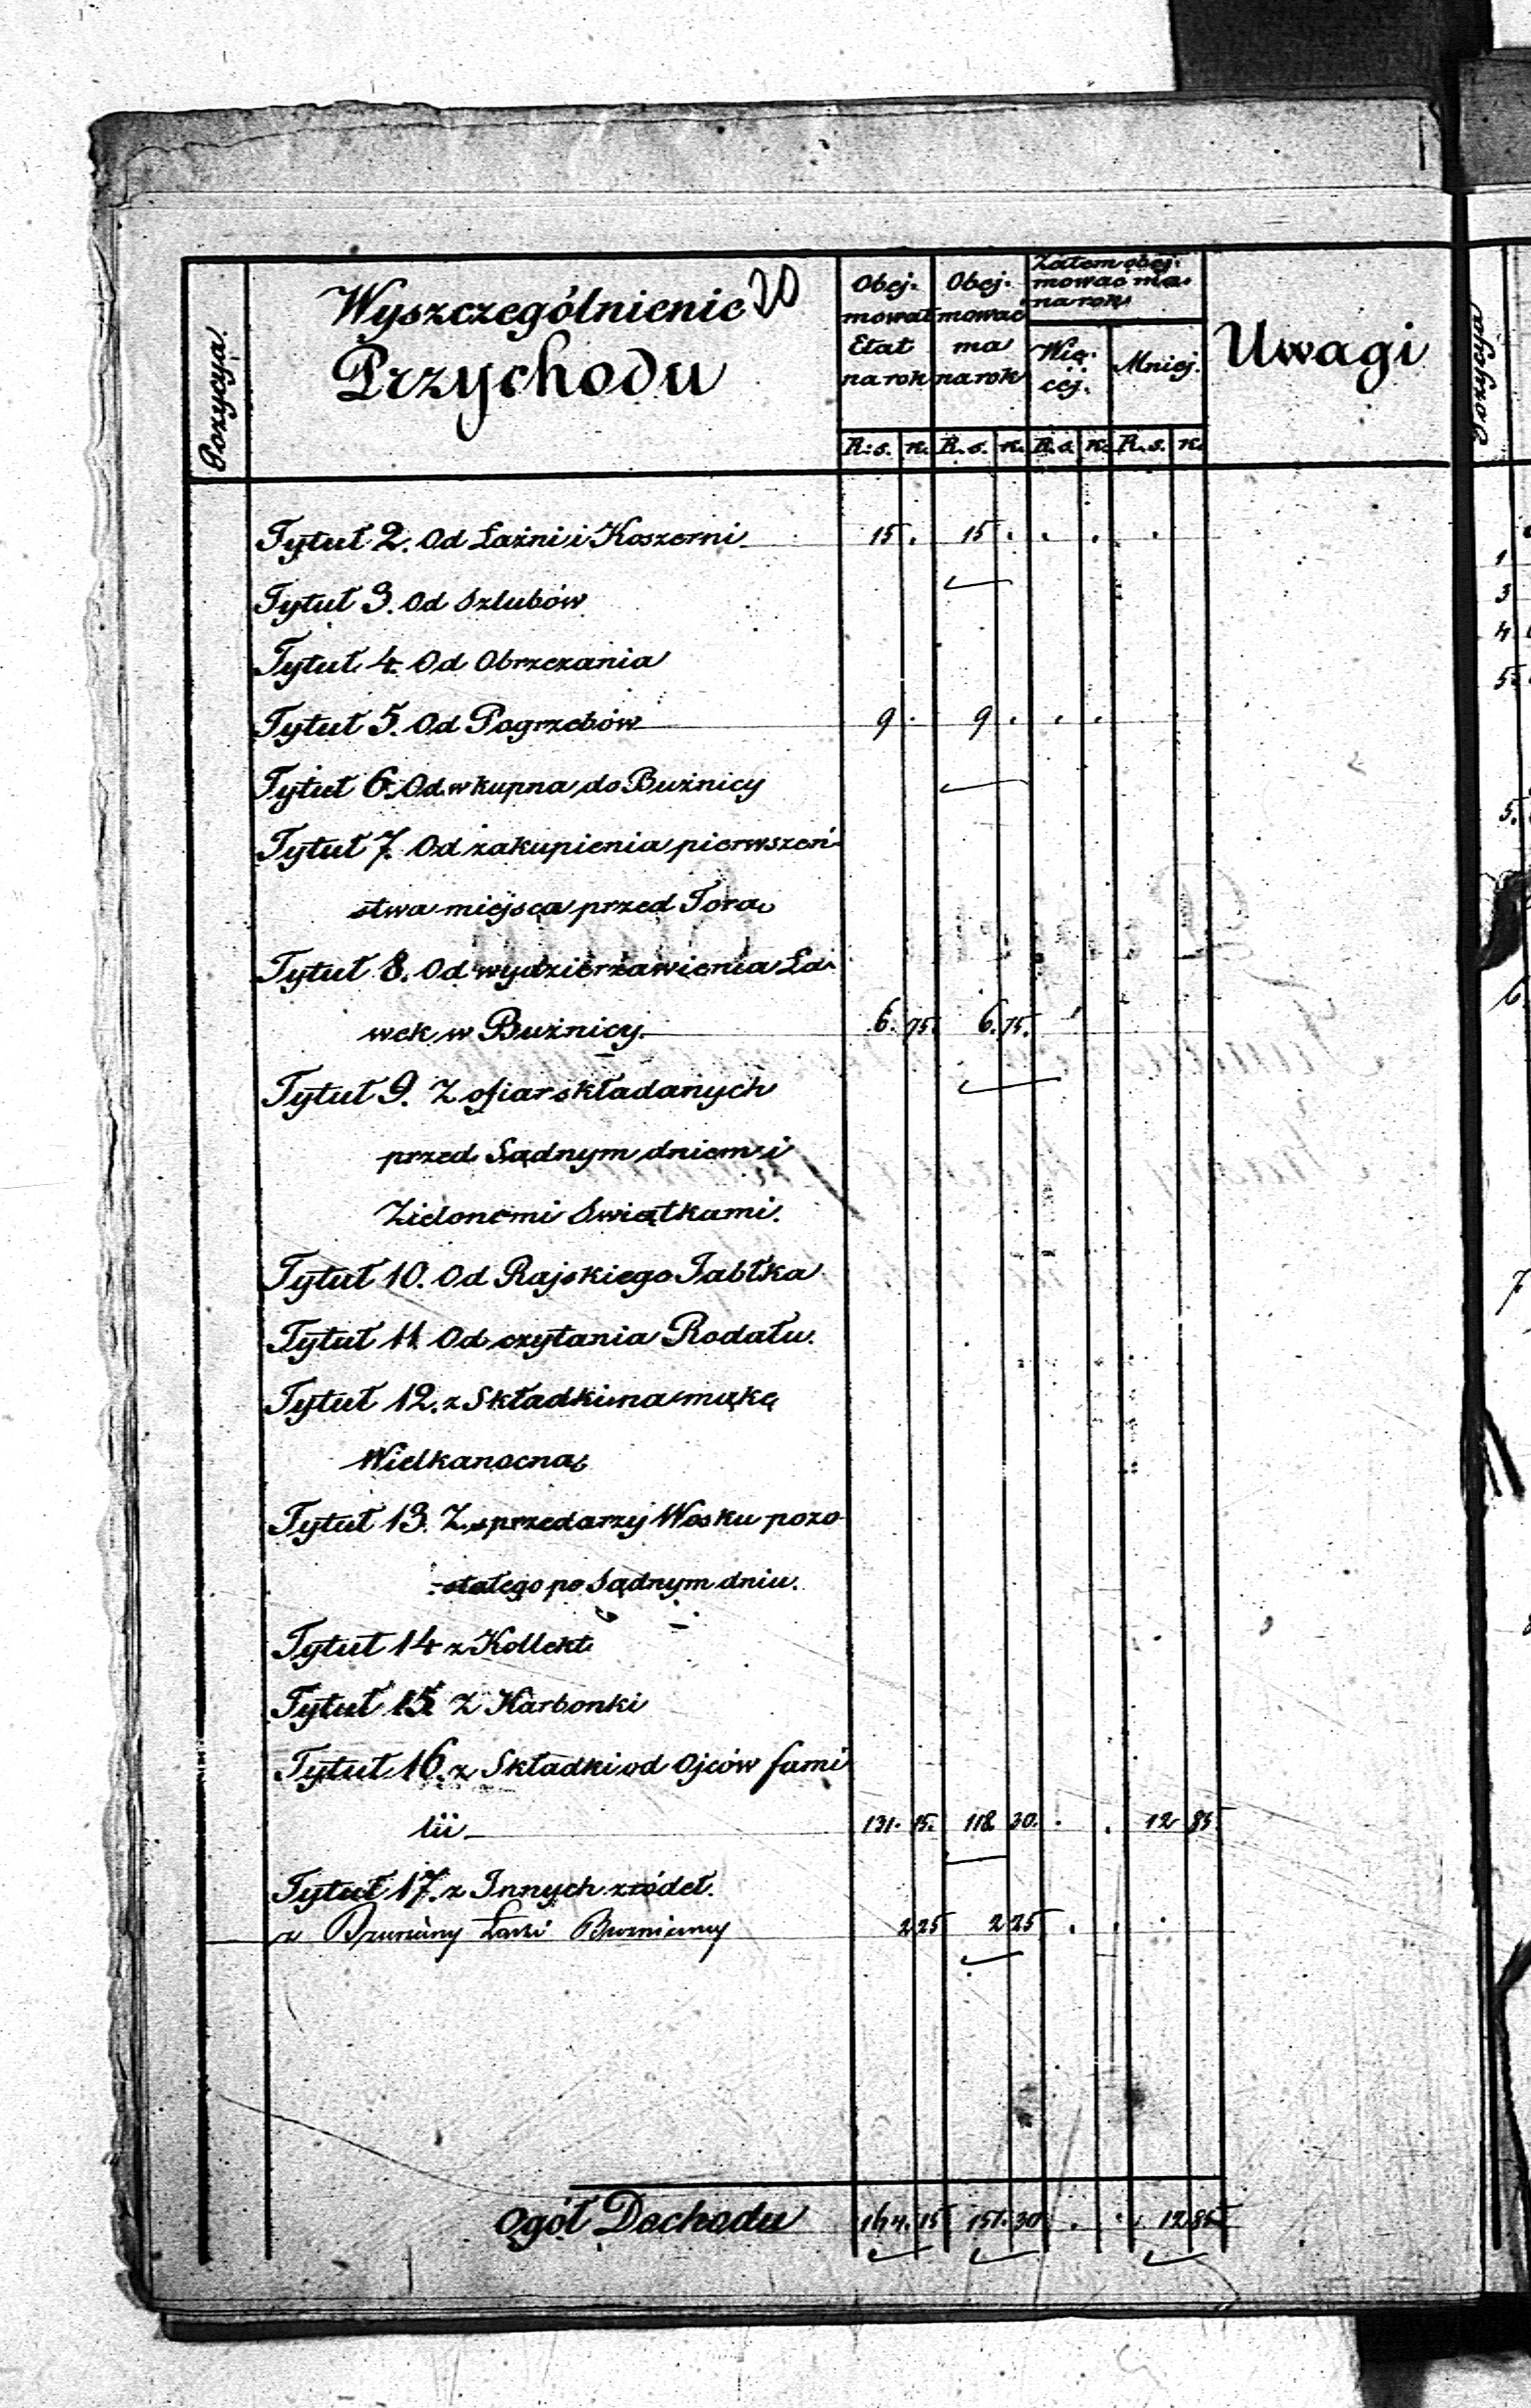 Pozycya.
Wyszczególnienie 20
Przychodu
Obej-
mował
Etat
na rok
R. s. k.
Obej-
mować
ma
na rok
R. s. k.
Zatem obej-
mować ma
na rok
Wię-
cej.
R. s. k.
Mniej.
R. s. k.
Uwagi
Tytuł 2. Od Łaźni i Koszerni 15 . 15 . . . .
Tytuł 3. Od Szlubów
Tytuł 4. Od Obrzezania
Tytuł 5. Od Pogrzebów 9 . 9 . . .
Tytuł 6. Od wkupna do Bużnicy
Tytuł 7. Od zakupienia pierwszeń-
stwa miejsca przed Torą
Tytuł 8. Od wydzierżawienia Ła-
wek w Bużnicy. 6. 75. 6. 75.
Tytuł 9. Z ofiar składanych
przed Sądnym dniem i
Zielonemi Swiątkami.
Tytuł 10. Od Rajskiego Jabłka
Tytuł 11. Od czytania Rodału.
Tytuł 12. z Składki na mąkę
Wielkanocną
Tytuł 13. Z sprzedarzy Wosku pozo-
stałego po Sądnym dniu.
Tytuł 14 z Kollekt
Tytuł 15. Z Karbonki
Tytuł 16. z Składki od Ojców fami
lii 131. 15. 118 30. . . 12 85
Tytuł 17. z Innych źródeł.
z 2 25 2 25 . . .
Ogół Dochodu 164. 15 151. 30 . . 12 85
Pozycya
1
3
4
5
5.
6.
7